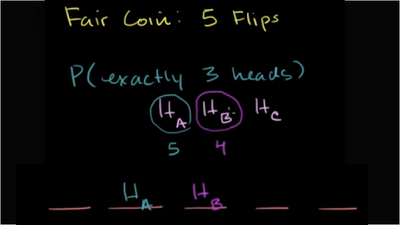 Fair Coin: 5 Flips
P(exactly 3 heads)
H_A H_B H_C
5 4
H_A H_B